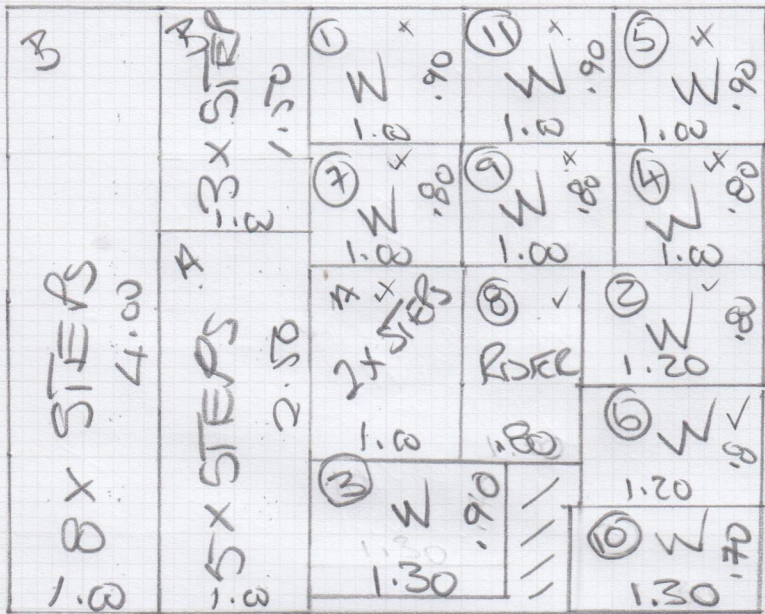 B
8 x STEPS
4.00
1.00
B
3 x STEP
1.50
1.00
A
5 x STEPS
2.50
1.00
① x
W .90
1.00
⑪ x
W .90
1.00
⑤ x
W .90
1.00
⑦ x
W .80
1.00
⑨ x
W .80
1.00
④ x
W .80
1.00
A x
2x STEPS
1.00
⑧ ✓
RISER
.80
② ✓
W .80
1.20
⑥ ✓
W .8
1.20
③
W .90
1.30
1.30
⑩
W .70
1.30